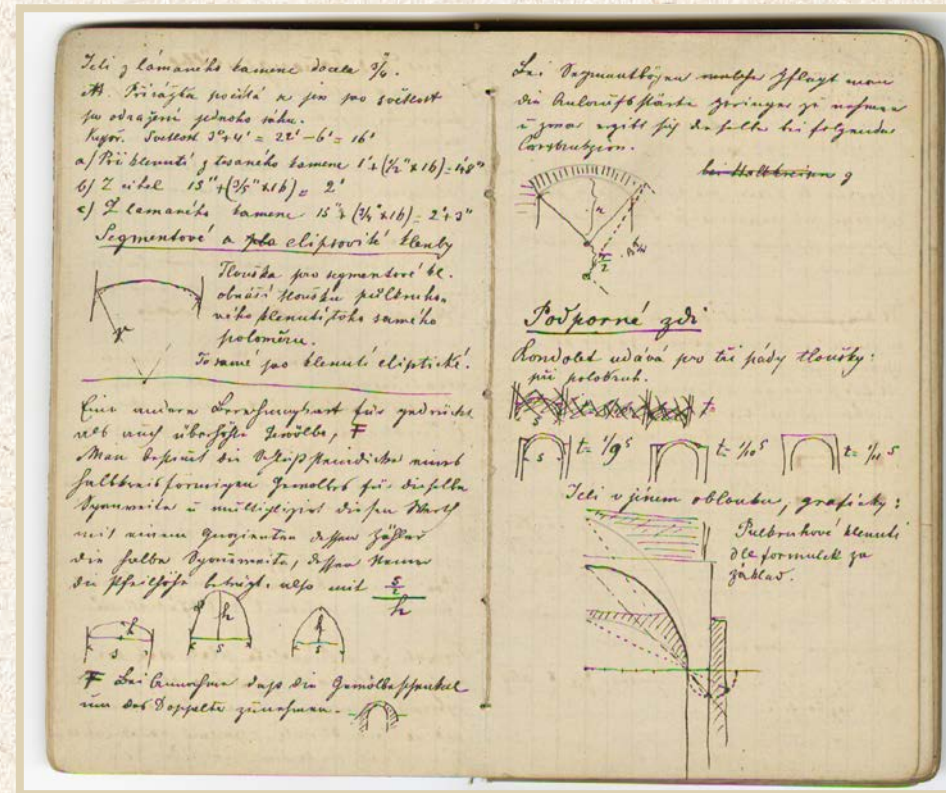 Jeli z lámaného kamene docela 3/4.
NB. Přirážka počítá se jen pro světlost
po odražení jednoho sáhu.
Kupř. Světlost 3°+4' = 22' − 6' = 16'
a) Při klenutí z tesaného kamene 1'+(1/2"×16)=1'8"
b) Z cihel 15"+(3/5"×16)= 2'
c) Z lámaného kamene 15"+(3/4"×16)= 2'+3"
Segmentové a elipsovité klenby
Tlouška pro segmentové kl.
obnáší tloušku půlkruho-
vého klenutí, toho samého
poloměru.
To samé pro klenutí eliptické.
r
Eine andere Berechnungsart für gedrückte
als auch überhöhte Gewölbe, F
Man bestimmt die Schlußsteindicke eines
halbkreisformigen Gewolbes für dieselbe
Spannweite u multiplizirt diesen Werth
mit einem Quozienten dessen Zähler
die halbe Spannweite, dessen Nenner
die Pfeilhöhe beträgt, also mit s/2
h
h h h
s s s
F Bei Annahme daß die Gewölbeschenkel
um das Doppelte zunehmen.
Bei Segmentbögen welche pflegt man
die Anlaufsstärke geringer zu nehmen
u zwar ergibt sich dieselbe bei folgender
bei Halbkreisen
r
r/2
Podporné zdi
Rondolet udává pro tři pády tloušky:
při polokruh.
t=
s
s t= 1/9 s t= 1/10 s t= 1/11 s
Jeli v jiném oblouku, graficky:
Pulkruhové klenutí
dle formulek za
základ.